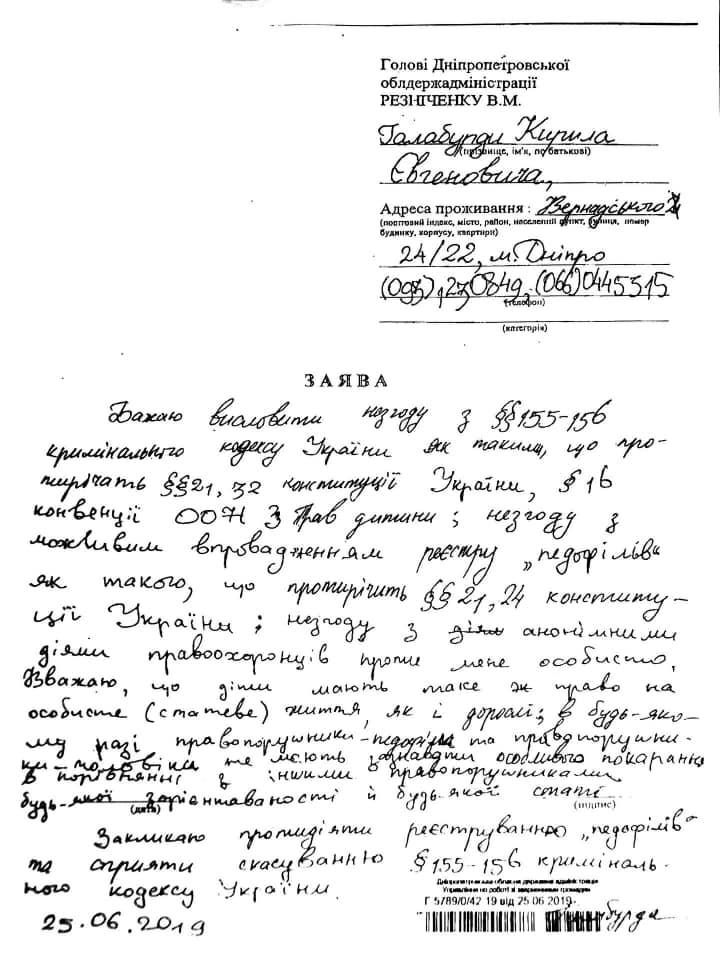 Голові Дніпропетровської
облдержадміністрації
РЕЗНІЧЕНКУ В.М.
Галабурди Кирила
(прізвище, ім'я, по батькові)
Євгеновича,
Адреса проживання : Вернадського
(поштовий індекс, місто, район, населений пункт, вулиця, номер
будинку, корпусу, квартири)
24/22, м. Дніпро
(066)0445315
(телефон)
(категорія)
ЗАЯВА
Бажаю висловити незгоду з §§155-156
кримінального кодексу України як такими, що про-
тирічать §§21, 32 конституції України, §16
конвенції ООН з прав дитини; незгоду з
можливим впровадженням реєстру „педофілів“
як такого, що протирічить §§21,24 конститу-
ції України; незгоду з діям анонімними
діями правоохоронців проти мене особисто.
Вважаю, що діти мають таке ж право на
особисте (статеве) життя, як і дорослі; в будь-яко-
му разі правопорушники-педофіли та правопорушни-
ки-чоловіки не мають зазнавати особливого покарання
в порівнянні з іншими правопорушниками
будь-якої зорієнтованості й будь-якої статі.
(дата) (підпис)
Закликаю протидіяти реєструванню „педофілів“
та сприяти скасуванню §155-156 криміналь-
ного кодексу України.
25.06.2019
Дніпропетровська обласна державна адміністрація
Управління по роботі зі зверненнями громадян
Г 5789/0/42 19 від 25 06 2019